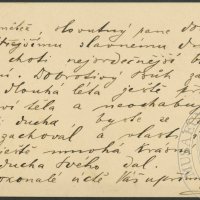 slovutný pane do
slavnému d
choti nejsrdečnější b
Dobrotivý Bůh zá
dlouhá léta ještě při
ví těla a neochabuj
ducha byste se
zachoval a vlasti
ještě mnohá krásná
ducha Svého dal.
dokonalé úctě Váš upřímn